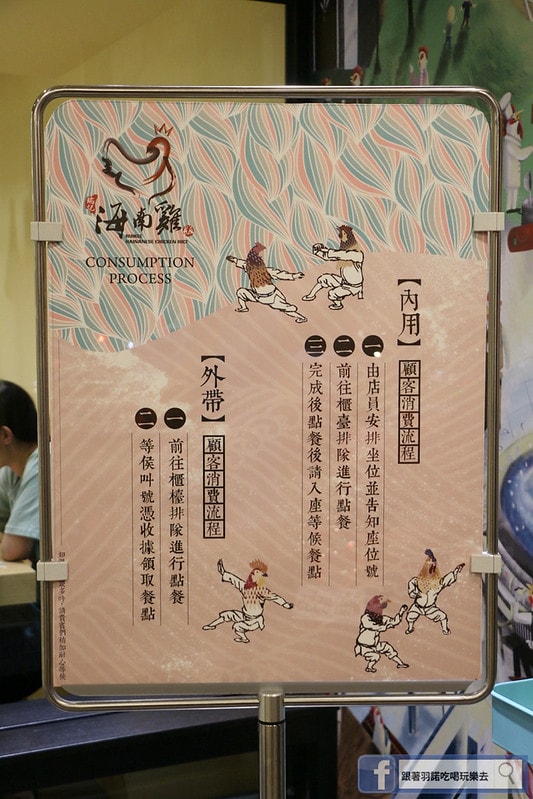 海南雞
HAINANESE CHICKEN RICE
CONSUMPTION
PROCESS
【內用】
顧客消費流程
一 由店員安排坐位並告知座位號
二 前往櫃臺排隊進行點餐
三 完成後點餐後請入座等候餐點
【外帶】
顧客消費流程
一 前往櫃檯排隊進行點餐
二 等侯叫號憑收據領取餐點
f 跟著羽諾吃喝玩樂去